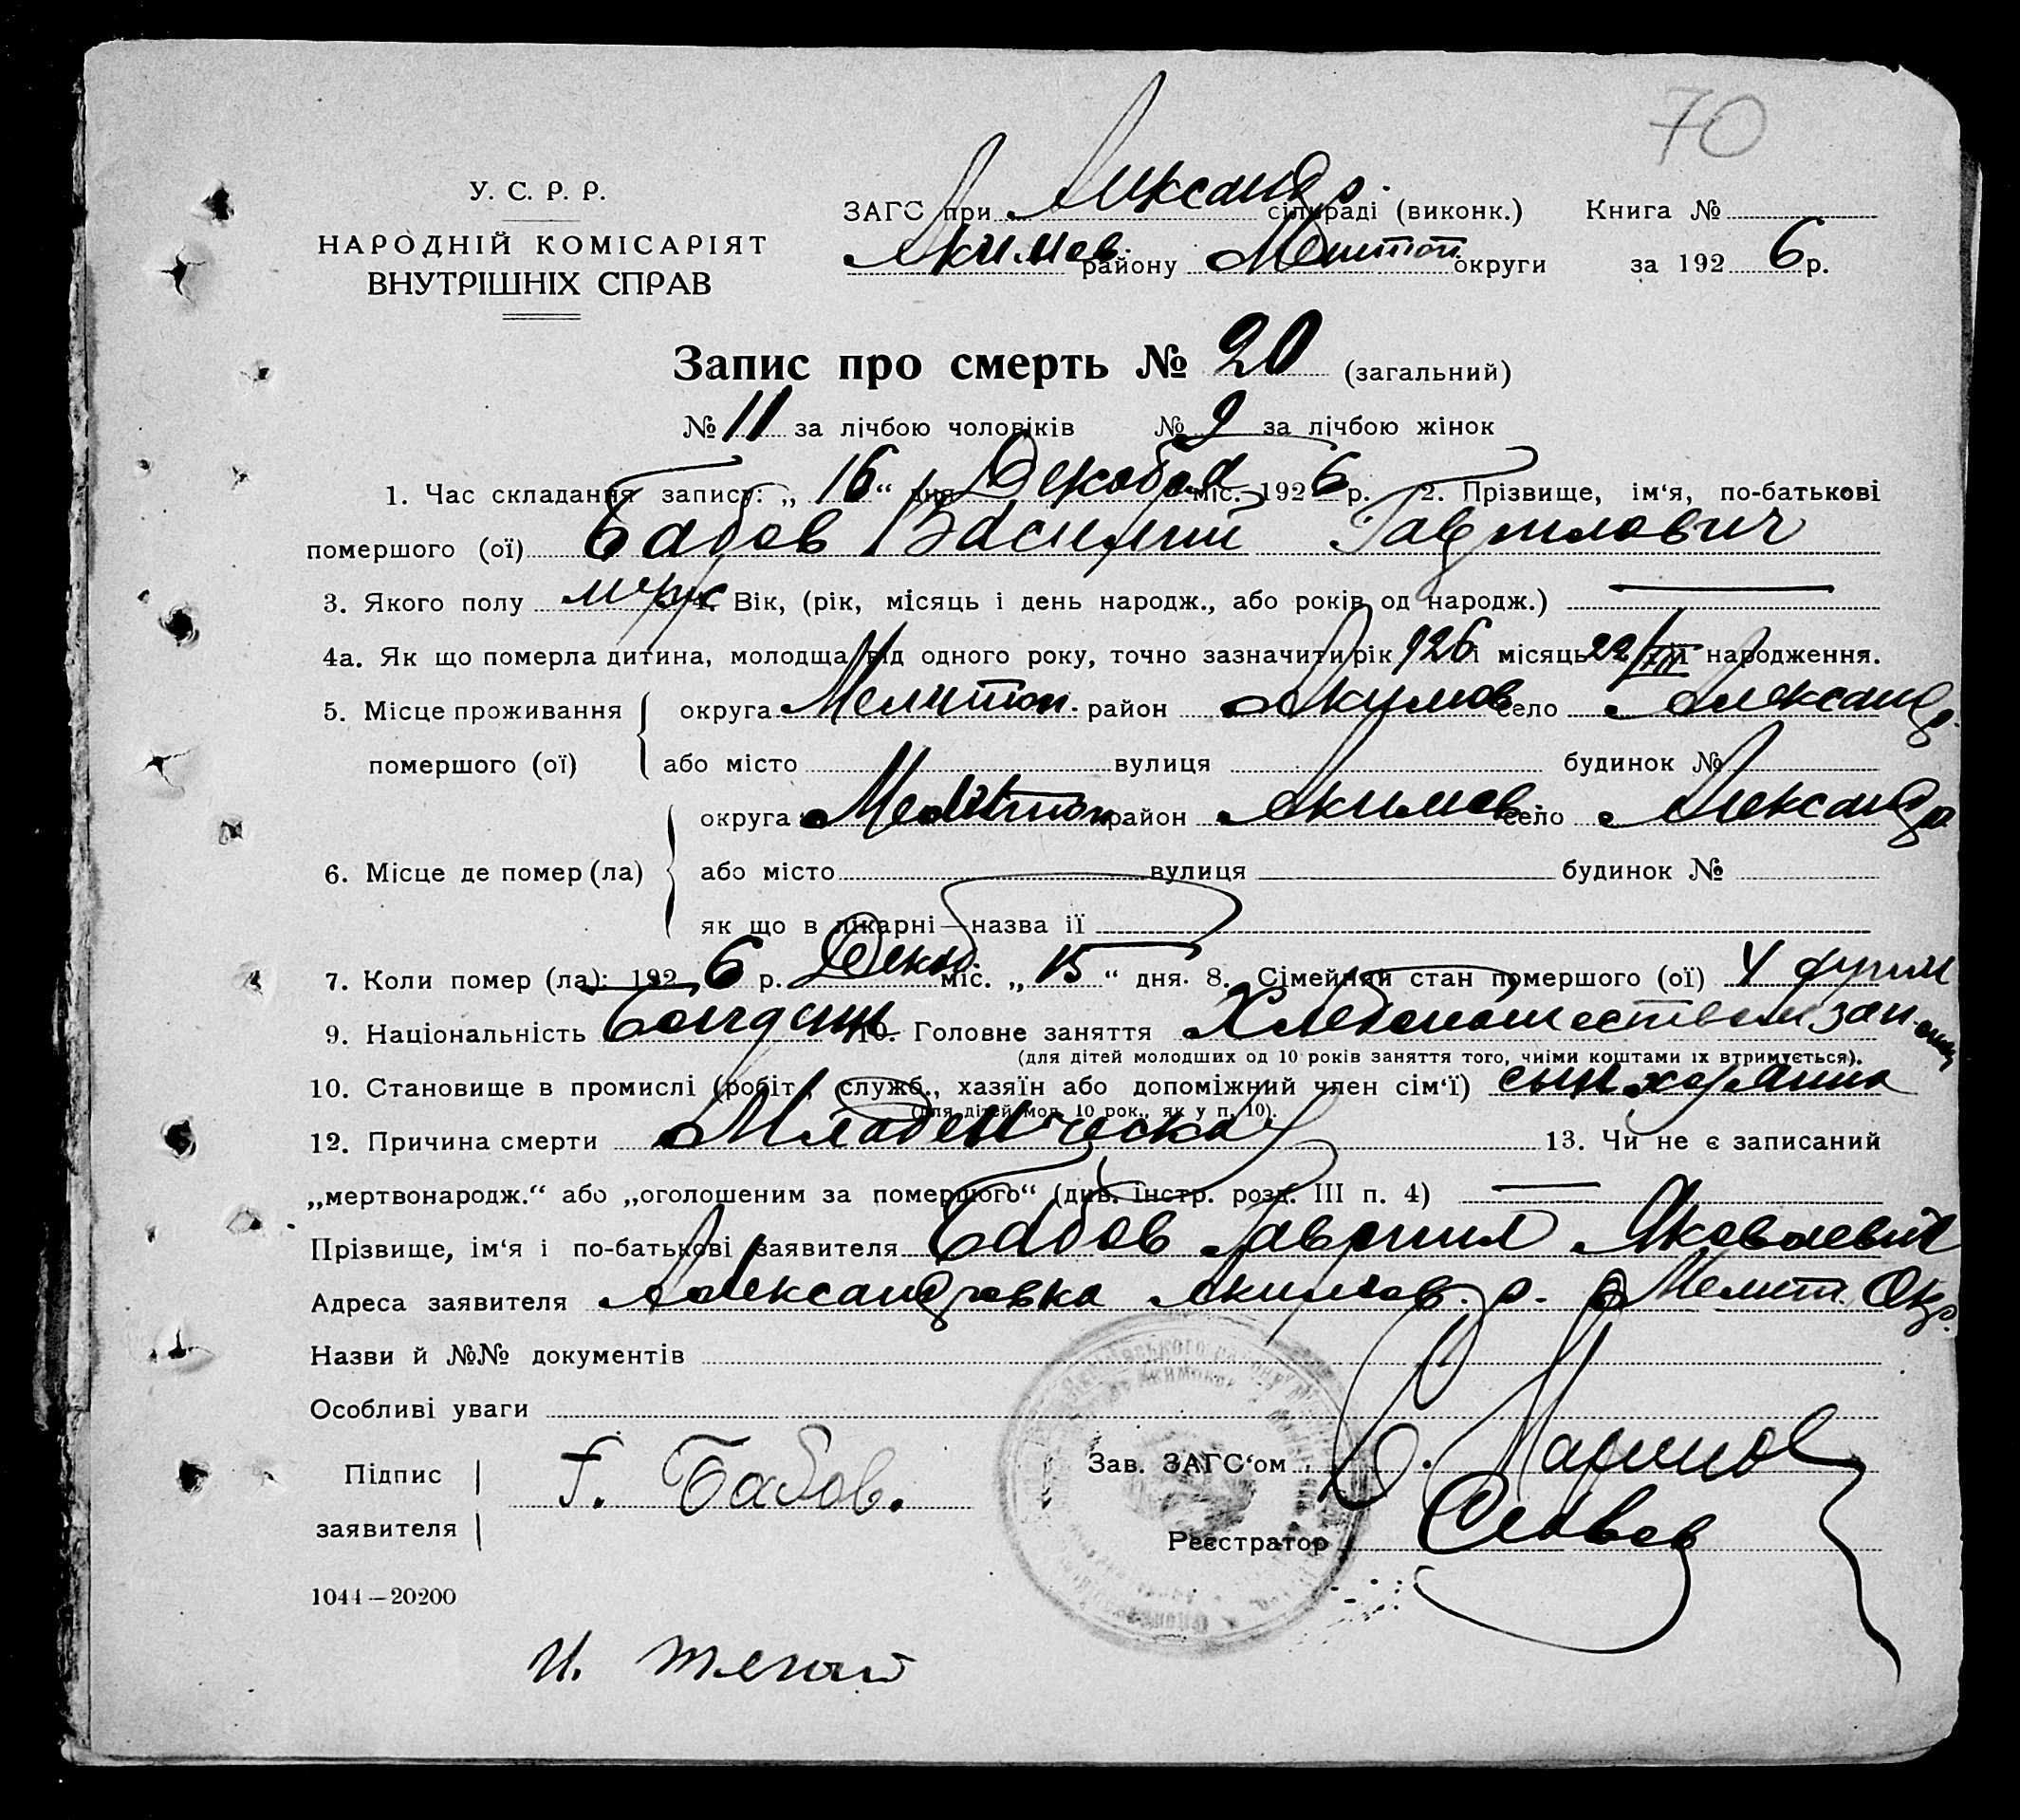 70
У. С. Р. Р.
НАРОДНІЙ КОМІСАРІЯТ
ВНУТРІШНІХ СПРАВ
ЗАГС при Александр. сільраді (виконк.) Книга №
Акимов. району Мелитоп округи за 1926 р.
Запис про смерть № 20 (загальний)
№ 11 за лічбою чоловіків № 9 за лічбою жінок
1. Час складання запису: „ 16 “ дня Декабря міс. 1926 р. 2. Прізвище, ім‘я, по-батькові
помершого (ої) Бабов Василий Гаврилович
3. Якого полу муж 4. Вік, (рік, місяць і день народж., або років од народж.) —
4а. Як що померла дитина, молодща від одного року, точно зазначити рік 926 і місяць 22/VII народження.
5. Місце проживання округа Мелитоп. район Акимов село Александр.
помершого (ої) або місто вулиця будинок №
округа Мелитоп район Акимов село Александр
6. Місце де помер (ла) або місто вулиця будинок №
як що в лікарні—назва її
7. Коли помер (ла): 1926 р. Декаб. міс. „ 15 “ дня. 8. Сімейний стан помершого (ої)
9. Національність 10. Головне заняття Хлебопашеством
(для дітей молодших од 10 років заняття того, чиїми коштами їх втримується).
10. Становище в промислі (робіт., служб., хазяїн або допоміжний член сім‘ї) сын хозяина
(для дітей мол. 10 рок., як у п. 10).
12. Причина смерти Младенческая 13. Чи не є записаний
„мертвонародж.“ або „оголошеним за помершого“ (див. інстр. розд. III п. 4) —
Прізвище, ім‘я і по-батькові заявителя Бабов Гавриил Яковлевич
Адреса заявителя Александровка Акимов. р. Мелит. Окр.
Назви й №№ документів
Особливі уваги
Підпис
заявителя
Г. Бабов.
Зав. ЗАГС‘ом
Реєстратор
1044—20200